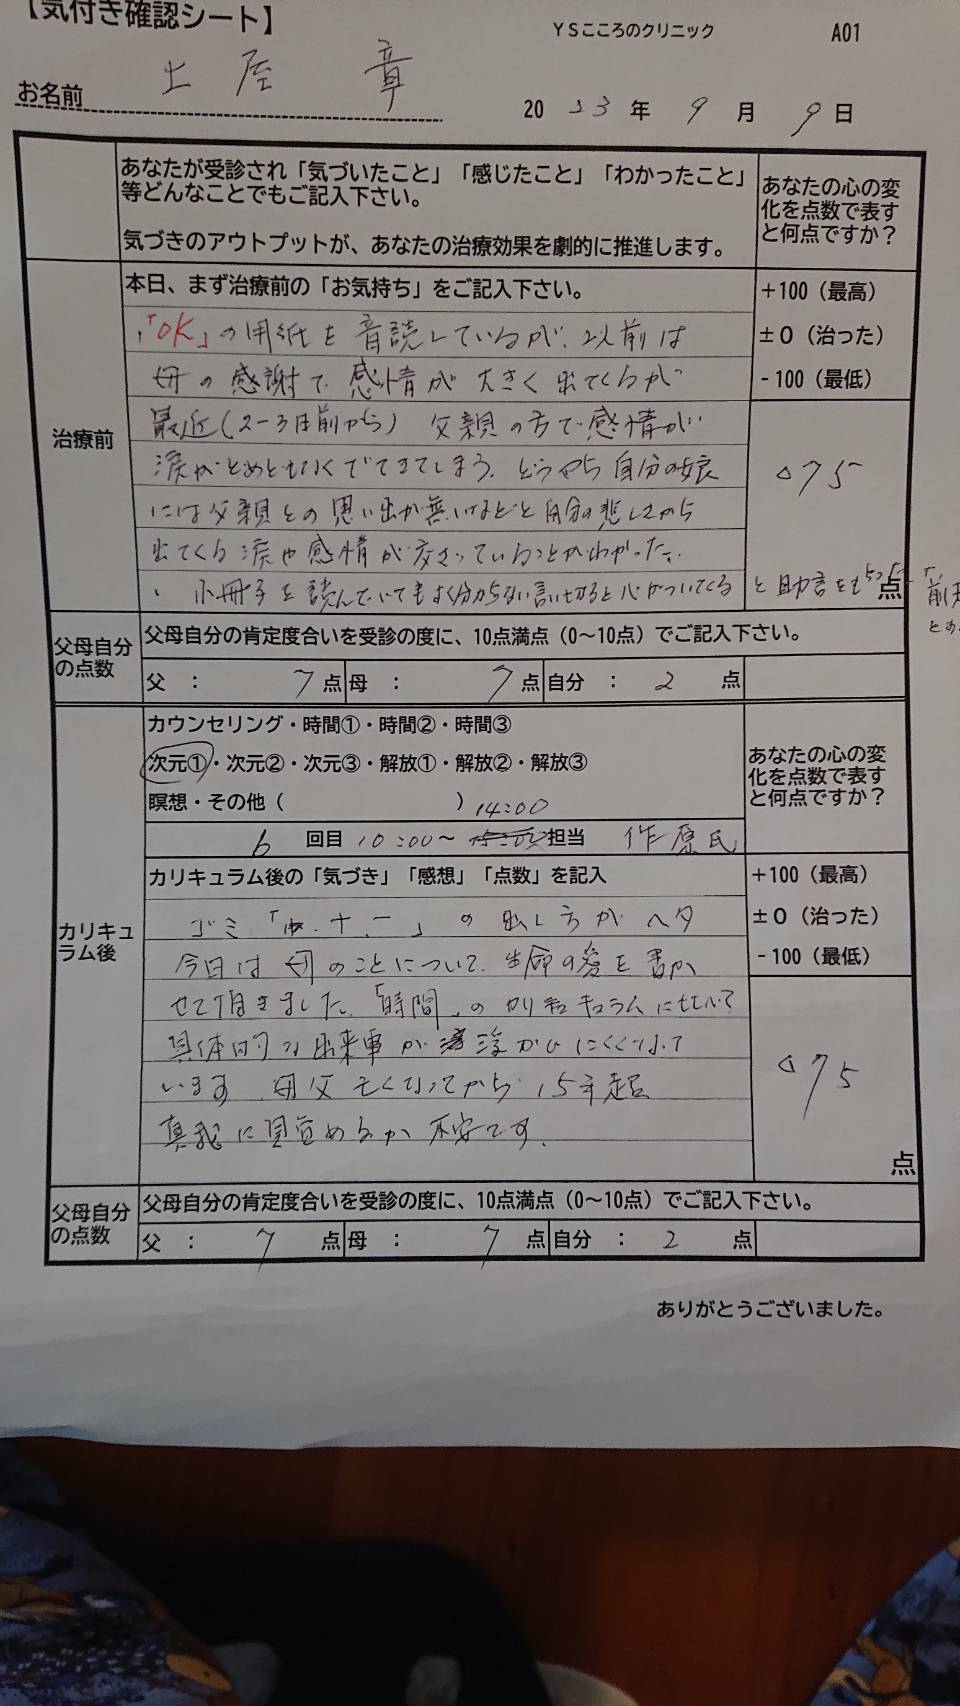 【気付き確認シート】
YSこころのクリニック A01
お名前 土屋 章
2023年 9月 9日
あなたが受診され「気づいたこと」「感じたこと」「わかったこと」
等どんなことでもご記入下さい。
気づきのアウトプットが、あなたの治療効果を劇的に推進します。
あなたの心の変
化を点数で表す
と何点ですか？
治療前
本日、まず治療前の「お気持ち」をご記入下さい。
+100（最高）
±0（治った）
-100（最低）
・「OK」の用紙を音読しているが、以前は
母の感謝で感情が大きく出てくるが
最近(2-3日前から) 父親の方で感情が
涙がとめどなくでてきてしまう。どうやら自分の娘
には父親との思い出が無いなどと自分の悲しさから
出てくる涙や感情が交さっていることがわかった。
・小冊子を読んでいてもよく分からない言い切ると心がついてくる と助言をもらった
△75
点
父母自分
の点数
父母自分の肯定度合いを受診の度に、10点満点（0～10点）でご記入下さい。
父 ： 7点 母 ： 7点 自分 ： 2 点
カリキュ
ラム後
カウンセリング・時間①・時間②・時間③
次元①・次元②・次元③・解放①・解放②・解放③
瞑想・その他（ ）14:00
6 回目 10:00～ 15:00 担当 作原氏
あなたの心の変
化を点数で表す
と何点ですか？
カリキュラム後の「気づき」「感想」「点数」を記入
+100（最高）
±0（治った）
-100（最低）
ゴミ 「 ・十・一」の出し方がヘタ
今日は母のことについて、生命の愛を書か
せて頂きました。「時間」のカリキュラムに比べて
具体的な出来事が浮かびにくくなって
います。母父亡くなってから、15年超
真我に目覚めるか不安です。
△75
点
父母自分
の点数
父母自分の肯定度合いを受診の度に、10点満点（0～10点）でご記入下さい。
父 ： 7 点 母 ： 7 点 自分 ： 2 点
ありがとうございました。